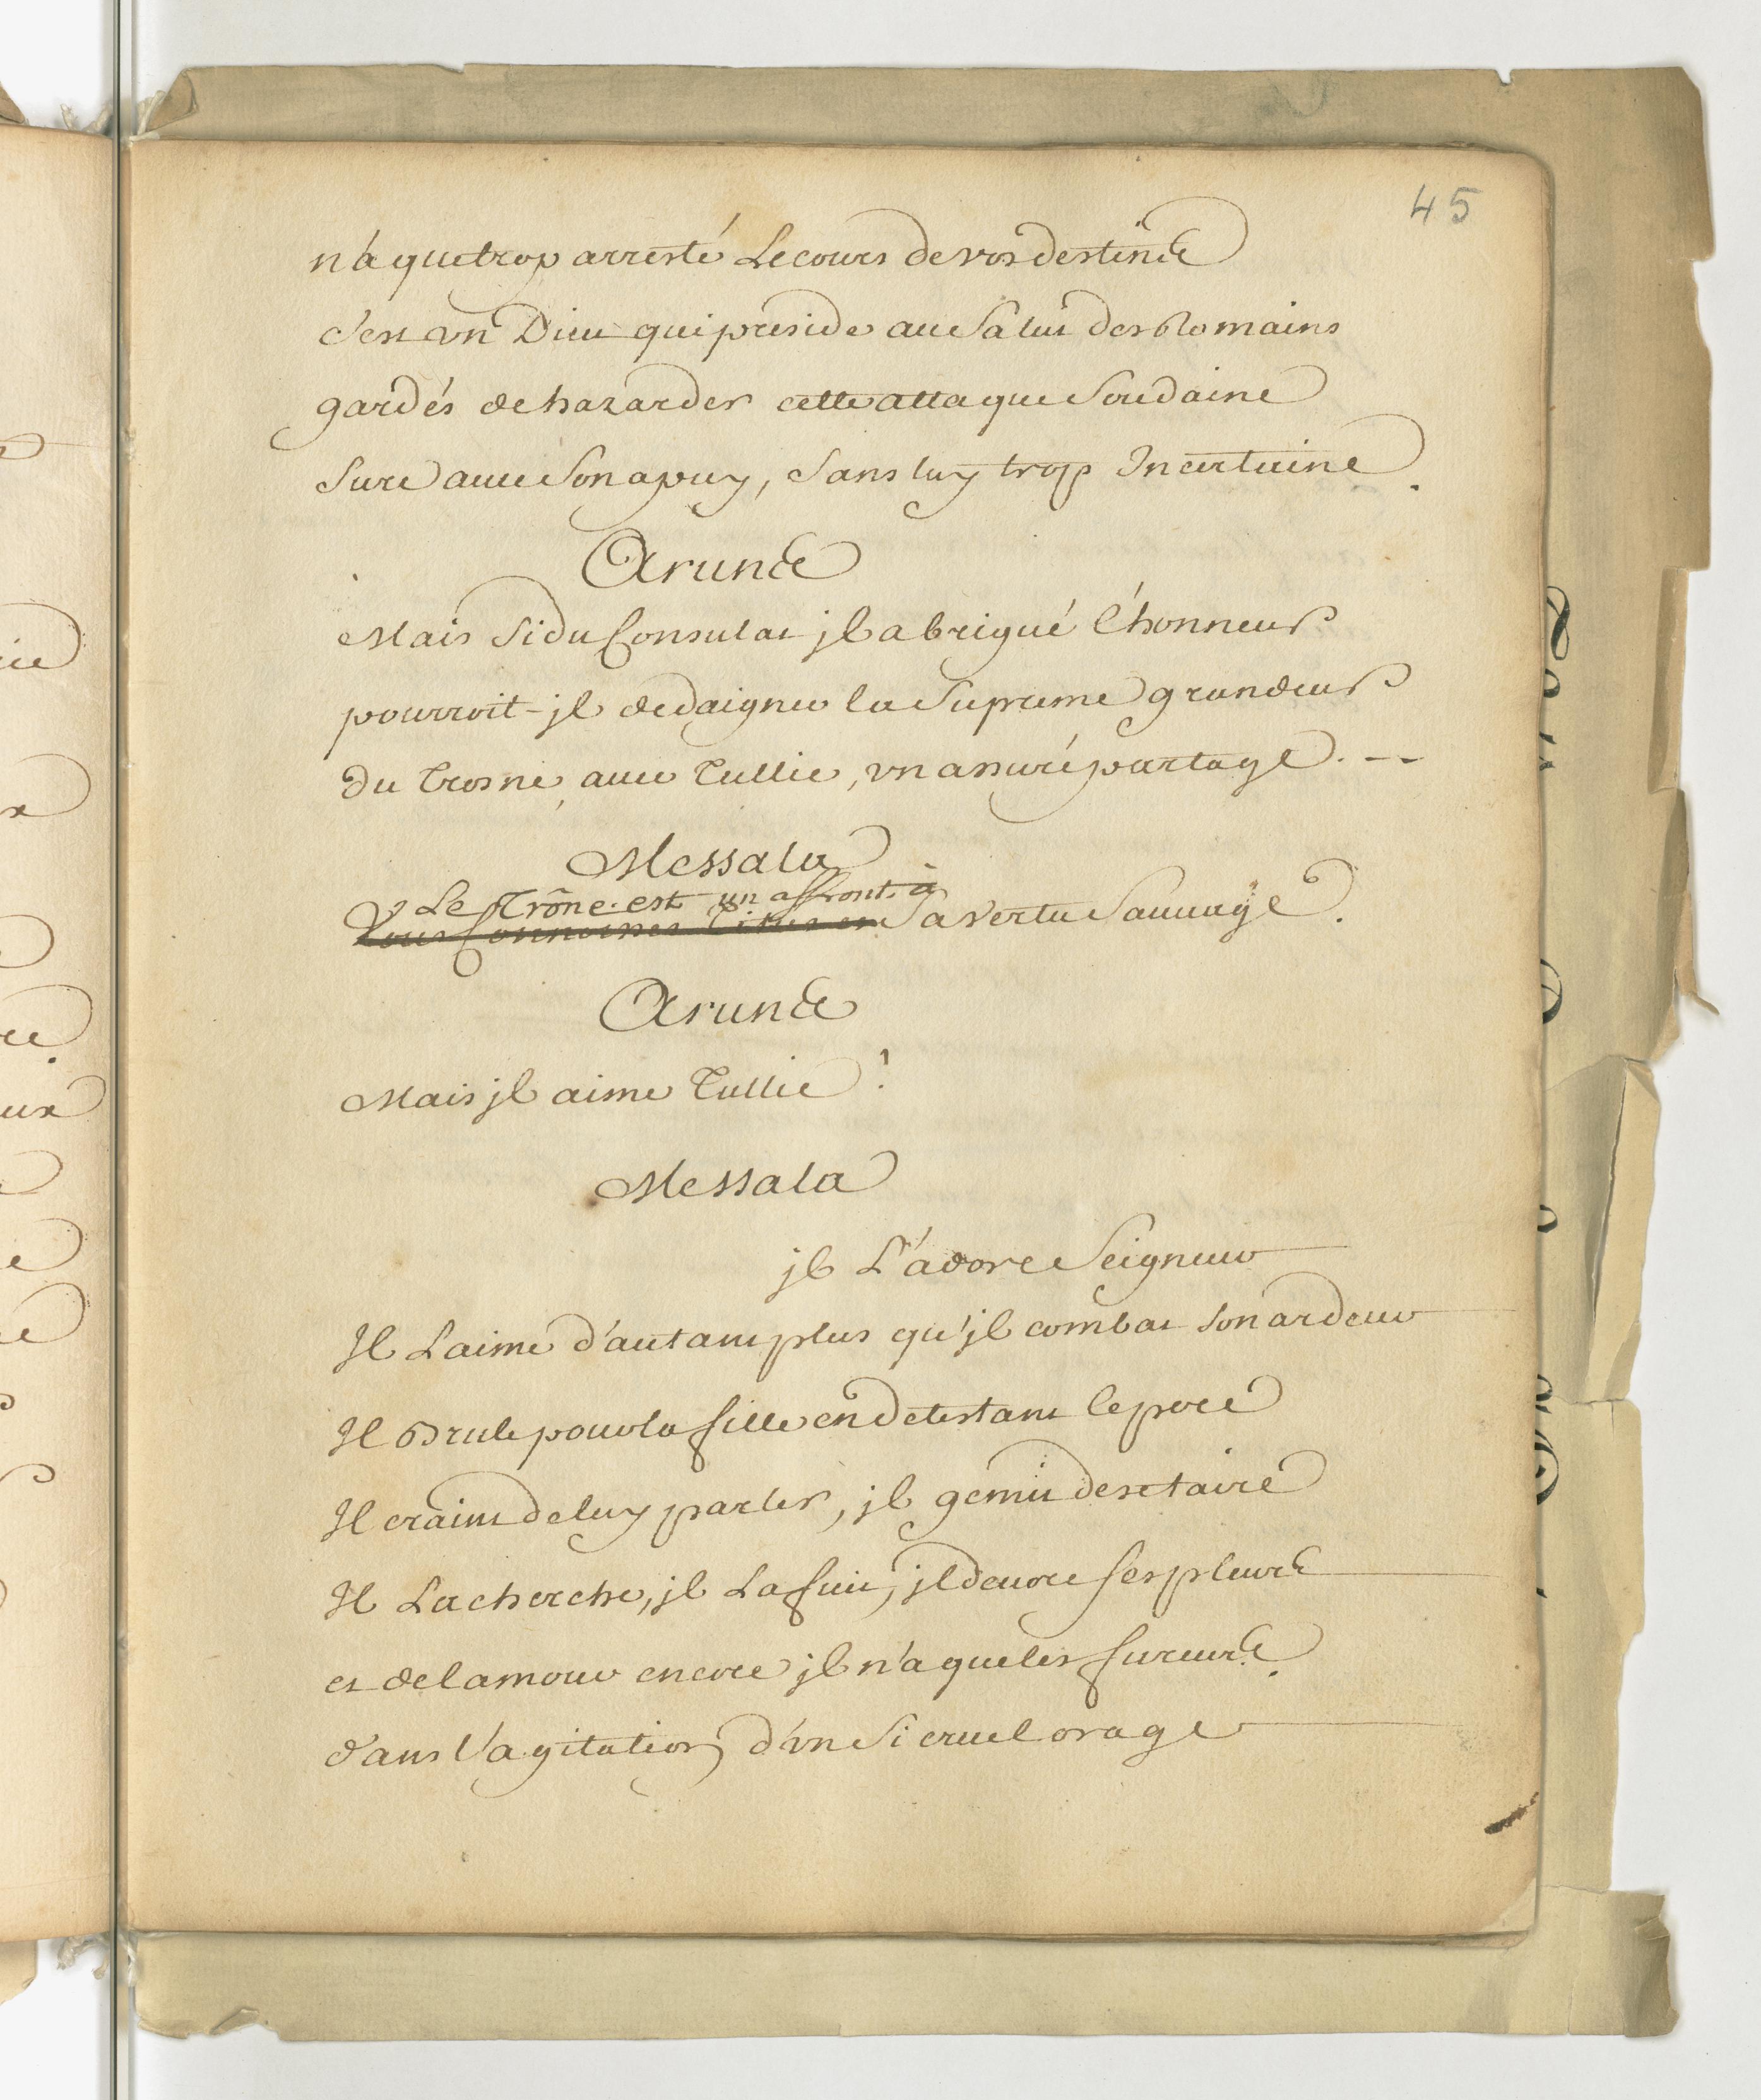 45
n'a que trop arresté Le cours de vos destins
C'est un Dieu qui preside au Salut des Romains
gardés de hazarder cette attaque Soudaine
Sure avec Son apuy, Sans luy trop Incertaine.
Aruns
Mais Si du Consulat jl a brigué l'honneur
pourroit-jl dedaigner la Supreme grandeur
Du Trosne, avec Tullie, un assuré partage. --
Messala
Le Trône est un affront à
Vous Connoisses Titus et Sa vertu Sauvage.
Aruns
Mais jl aime Tullie!
Messala
jl L'adore Seigneur
Il L'aime d'autant plus qu'jl combat Son ardeur
Il Brule pour la fille en detestant le pere
Il craint de luy parler, jl gemit de se taire
Il La cherche, jl La fuit, jl devore Ses pleurs
et de l'amour encore jl n'a que les fureurs.
d'ans l'agitation d'un Si cruel orage